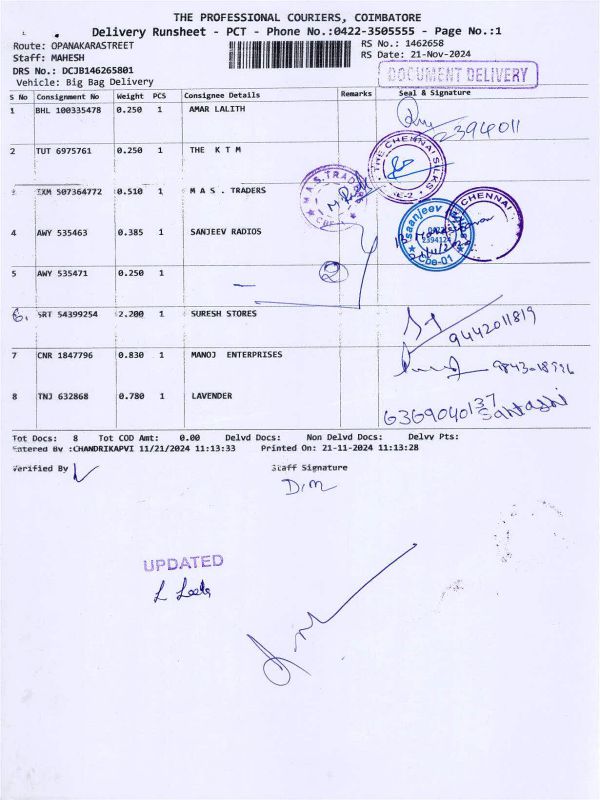 THE PROFESSIONAL COURIERS, COIMBATORE
Delivery Runsheet - PCT - Phone No.:0422-3505555 - Page No.:1
Route: OPANAKARASTREET RS No.: 1462658
Staff: MAHESH RS Date: 21-Nov-2024
DRS No.: DCJB146265801
Vehicle: Big Bag Delivery
DOCUMENT DELIVERY
S No Consignment No Weight PCS Consignee Details Remarks Seal & Signature
1 BHL 100335478 0.250 1 AMAR LALITH
2394011
2 TUT 6975761 0.250 1 THE K T M
THE CHENNAI SILKS
3 IXM 507364772 0.510 1 M A S . TRADERS
M.A.S. TRADERS
CHENNAI
4 AWY 535463 0.385 1 SANJEEV RADIOS
saanjeev
2394124
Cbe-01
5 AWY 535471 0.250 1
2
6. SRT 54399254 2.200 1 SURESH STORES
9442011819
7 CNR 1847796 0.830 1 MANOJ ENTERPRISES
8 TNJ 632868 0.780 1 LAVENDER
6369040137
Tot Docs: 8 Tot COD Amt: 0.00 Delvd Docs: Non Delvd Docs: Delvv Pts:
Entered By :CHANDRIKAPVI 11/21/2024 11:13:33 Printed On: 21-11-2024 11:13:28
Verified By Staff Signature
UPDATED